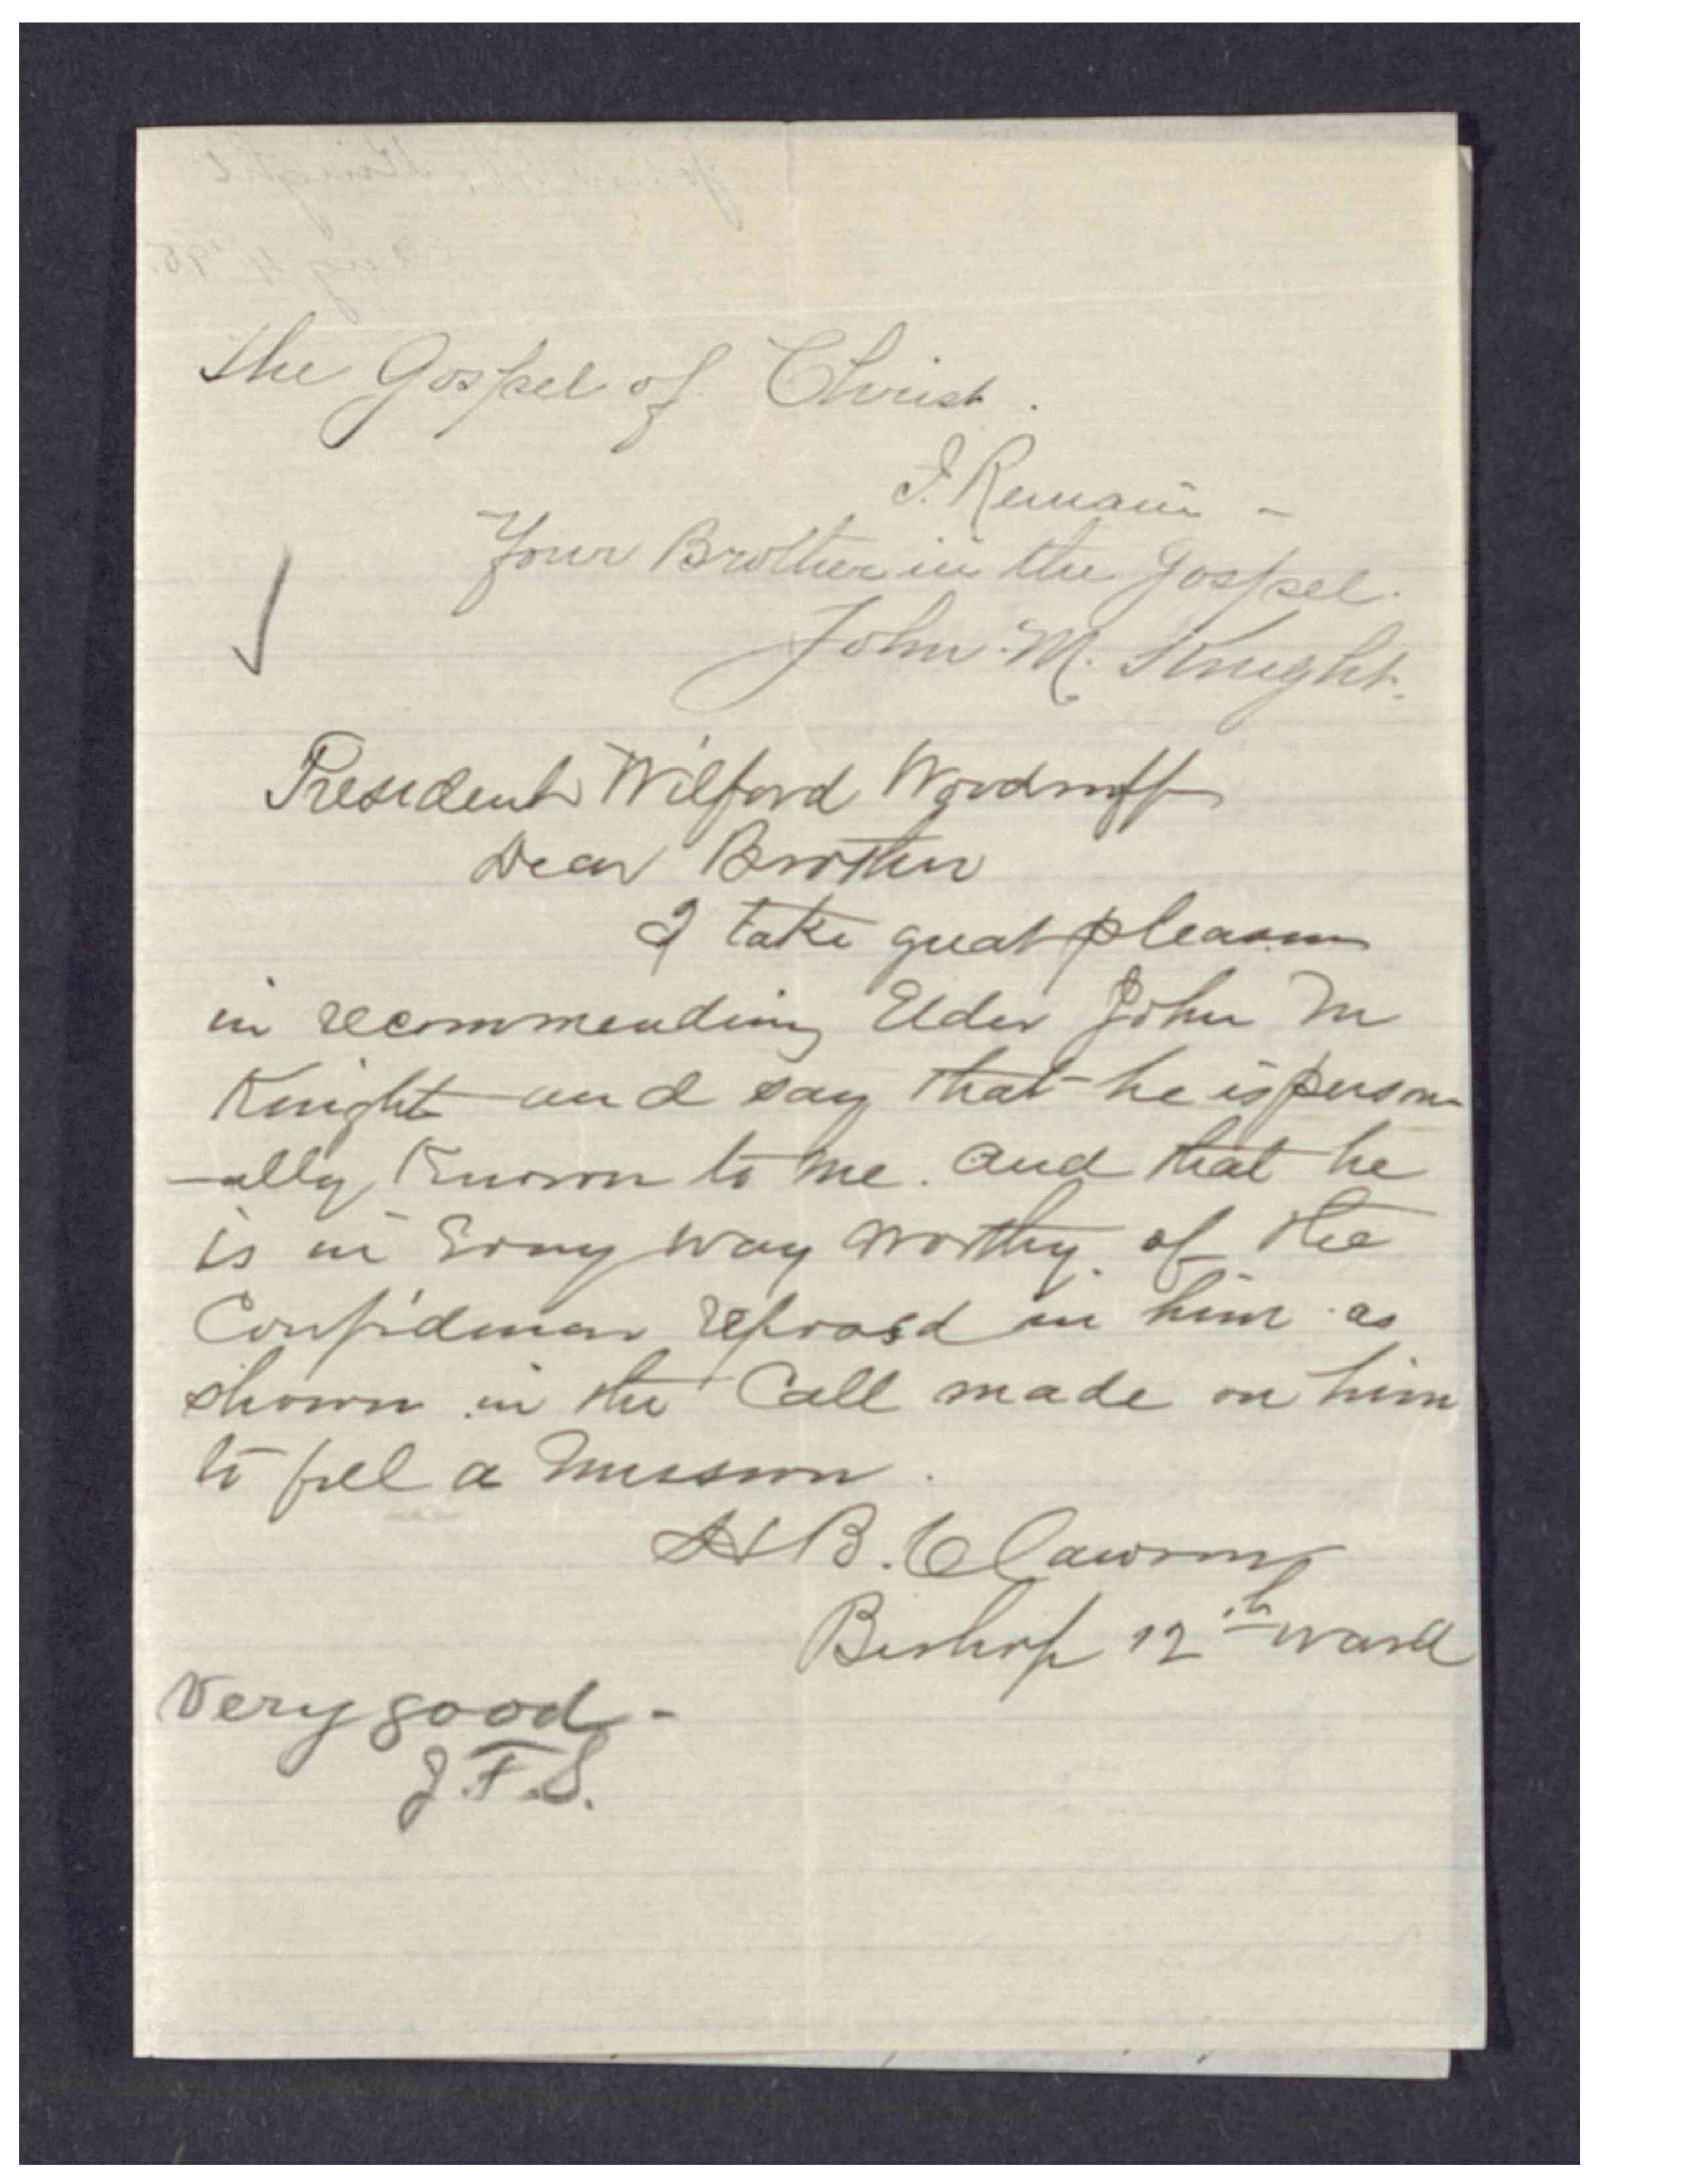 the Gospel of Christ.
I. Remain -
Your Brother in the Gospel.
John. M. Knight.
President Wilford Woodruff
Dear Brother
I take great pleasure
in recommending Elder John M
Knight and say that he is person
-ally Known to me. and that he
is in Every way worthy of the
Confidence reposed in him as
shown in the Call made on him
to fill a Mission.
H B. Clawson
Bishop 12th ward
Very good -
J.F.S.